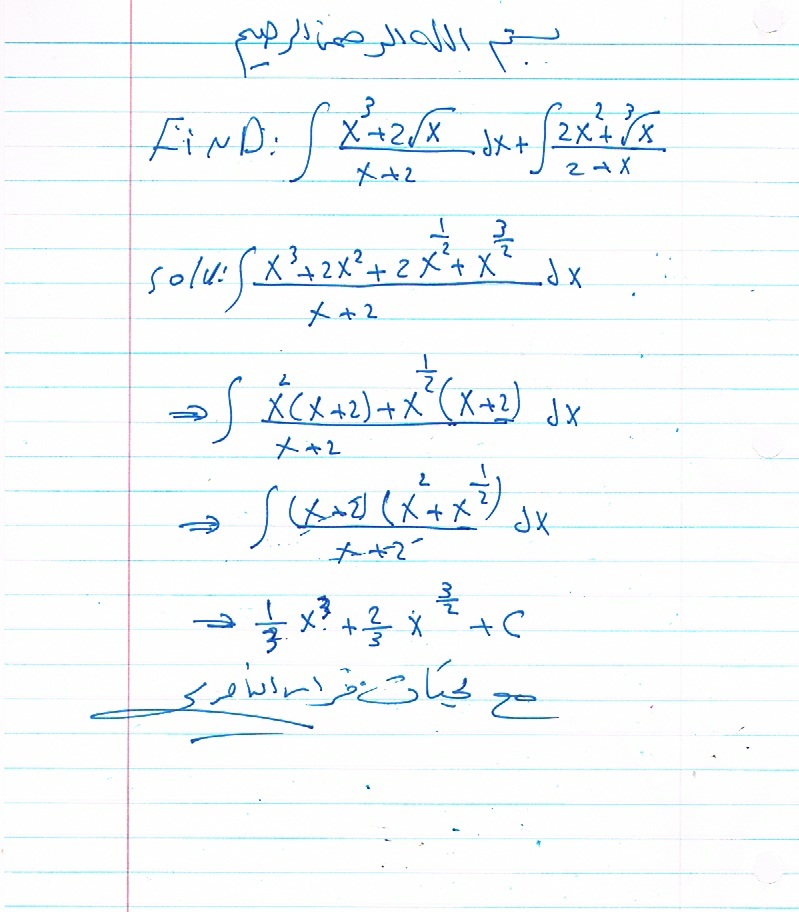 بسم الله الرحمن الرحيم
FIND: ∫ (x³+2√x)/(x+2) dx + ∫ (2x²+³√x)/(2+x)
Solu: ∫ (x³+2x²+2x^(1/2)+x^(3/2))/(x+2) dx
⇒ ∫ (x²(x+2)+x^(1/2)(x+2))/(x+2) dx
⇒ ∫ ((x+2)(x²+x^(1/2)))/(x+2) dx
⇒ 1/3 x³ + 2/3 x^(3/2) + C
مع تحيات فراس